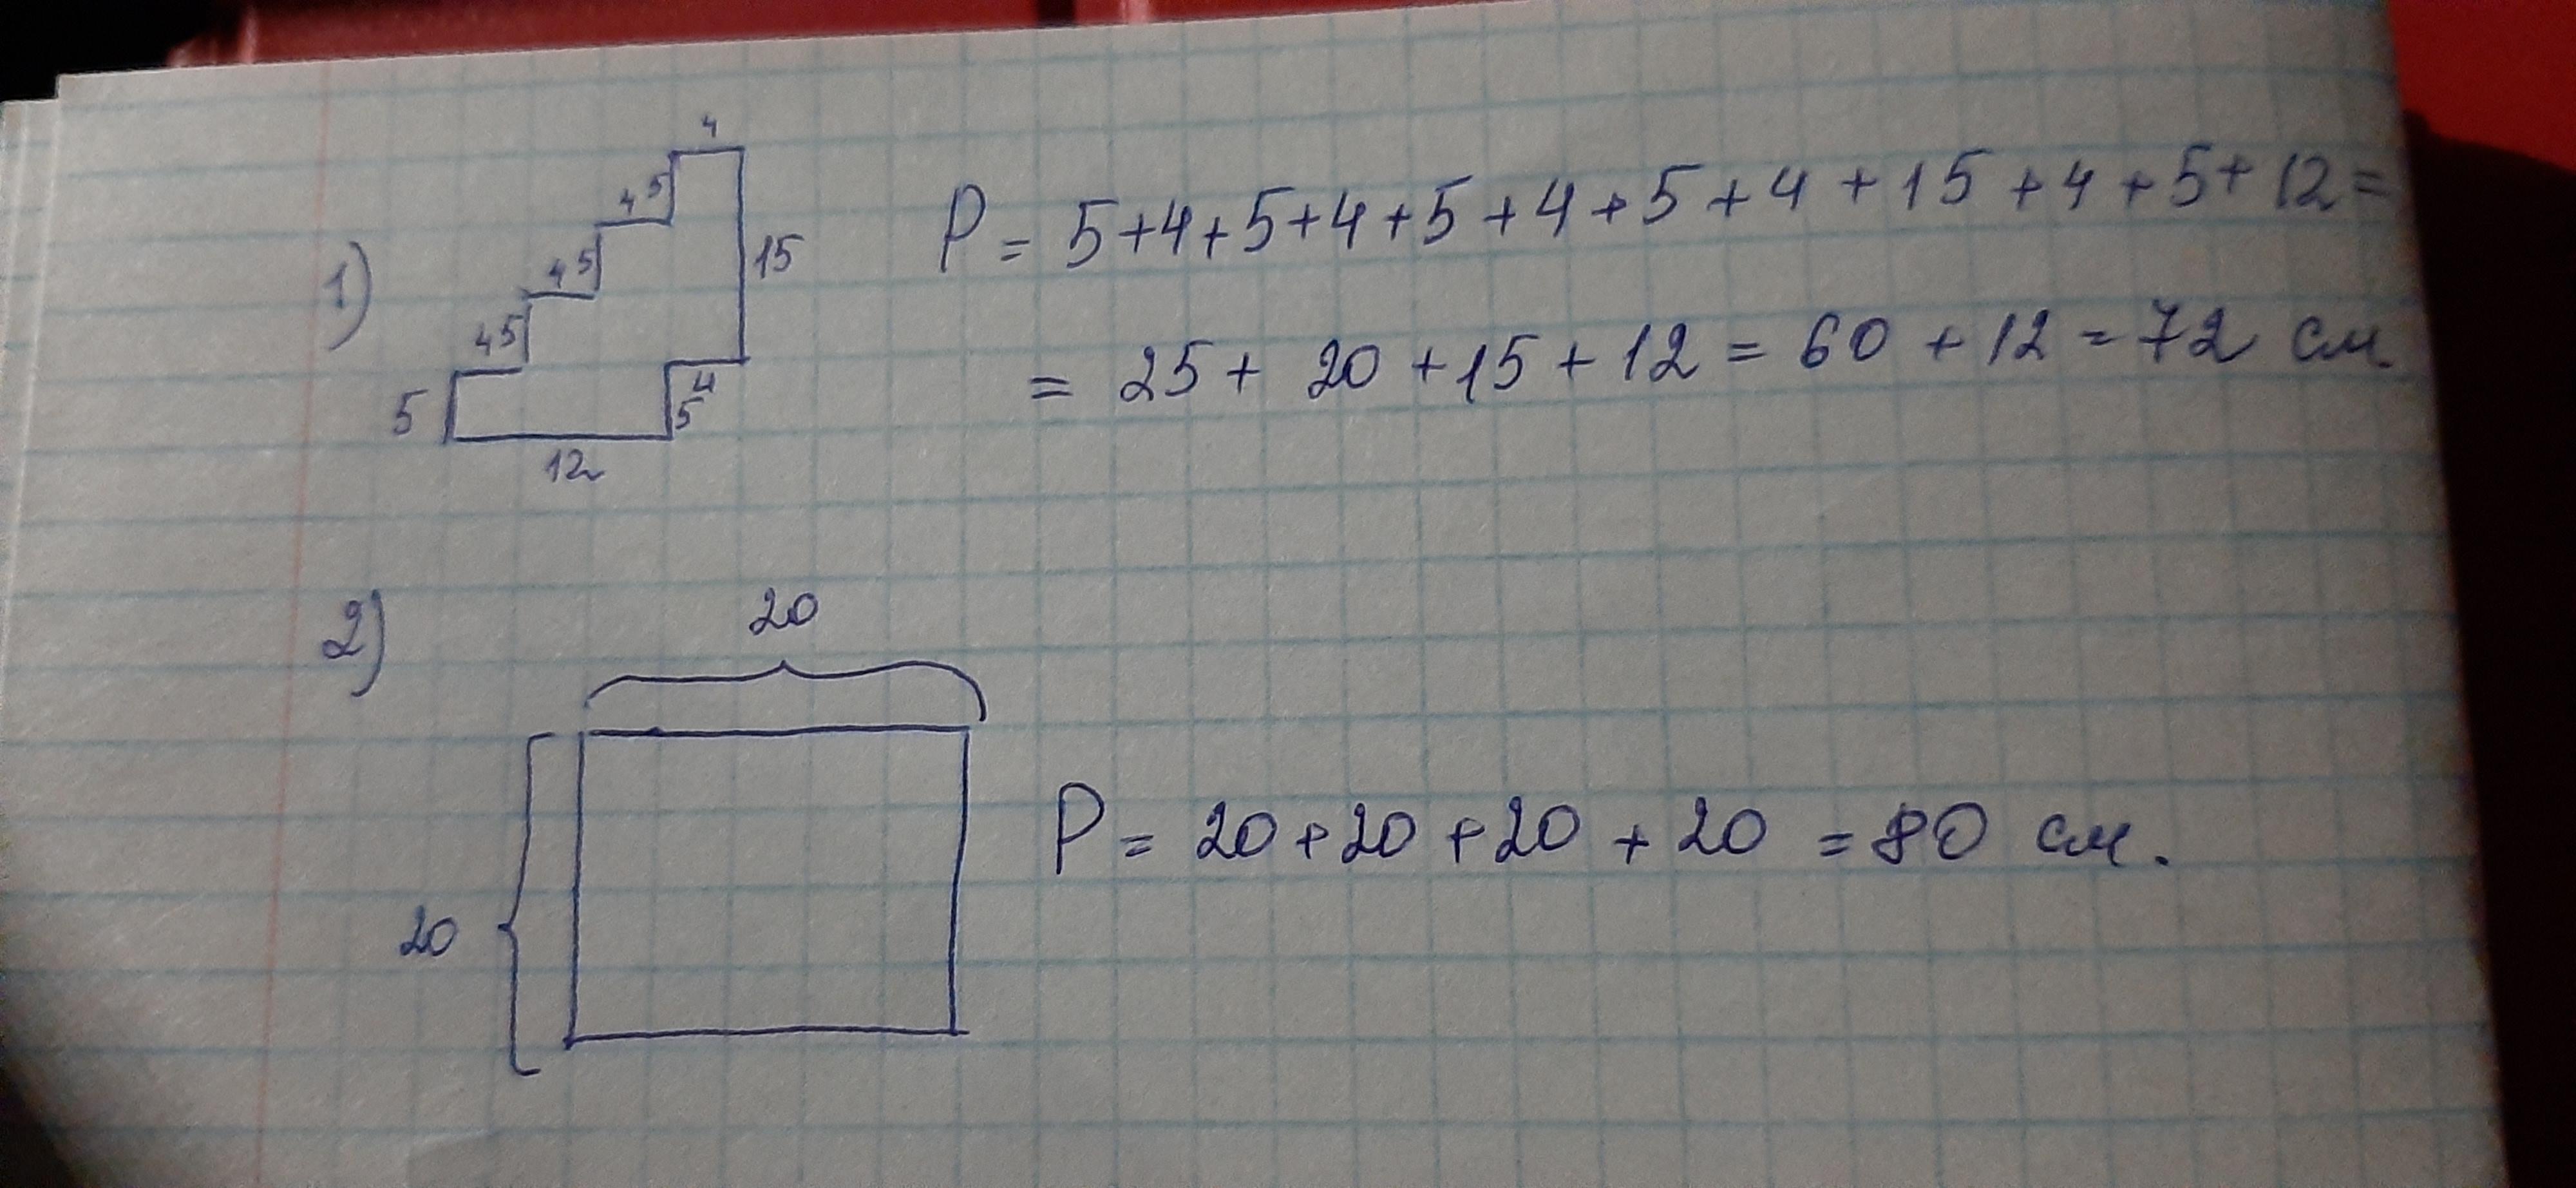 1)
4
4 5
4 5
4 5
15
5
4
5
12
P = 5+4+5+4+5+4+5+4+15+4+5+12=
= 25+ 20+15+12 = 60 +12 = 72 см.
2)
20
20
P = 20+20+20+20 = 80 см.